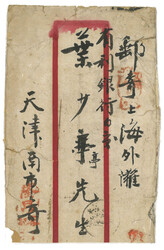 郵寄上海外灘
有利銀行內交
葉少亭先生
天津南市寄